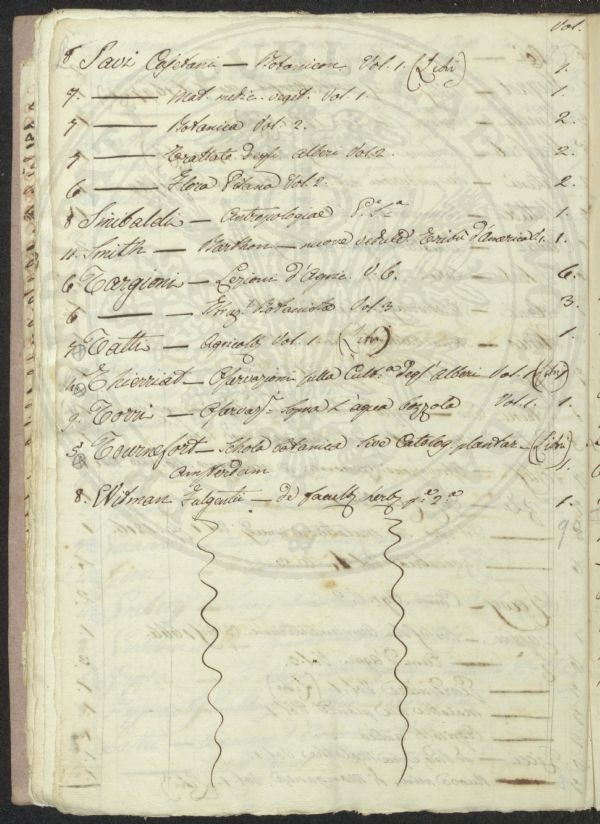 Vol.
8 Savi Cajetani — Botanicon Vol. 1. (Libri) 1.
7. —— Mat. medic. veget. Vol. 1. 1.
7 —— Botanica Vol. 2. 2.
7 —— Trattato degli alberi Vol. 2. 2.
6 —— Flora Pisana Vol. 2. 2.
8 Sinibaldi — Antropologiae 1.
11. Smith — nuove d'America 1.
6 Targioni — Lezioni d'Agric. V. 6. 6.
6 —— Vol. 3 3.
7 Tatti — Agricolt. Vol. 1. (Libri) 1.
Thierriat — Osservazioni sulla Cult.a degl'alberi Vol. 1 (Libri)
9. Torri — Osservaz. sopra l'aqua Vol. 1. 1.
5 Tournefort — Schola botanica sive Catalog. plantar. — (Libri)
Amsterdam 1.
8. Vitman Fulgentii — de facult. herb. 1.